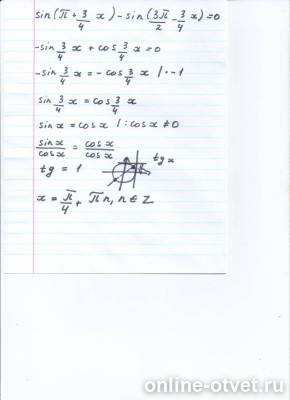 sin(π + 3/4 x) - sin(3π/2 - 3/4 x) = 0
-sin 3/4 x + cos 3/4 x = 0
-sin 3/4 x = -cos 3/4 x | · -1
sin 3/4 x = cos 3/4 x
sin x = cos x | : cos x ≠ 0
sin x / cos x = cos x / cos x
tg x
tg = 1
x = π/4 + πn, n ∈ Z
online-otvet.ru